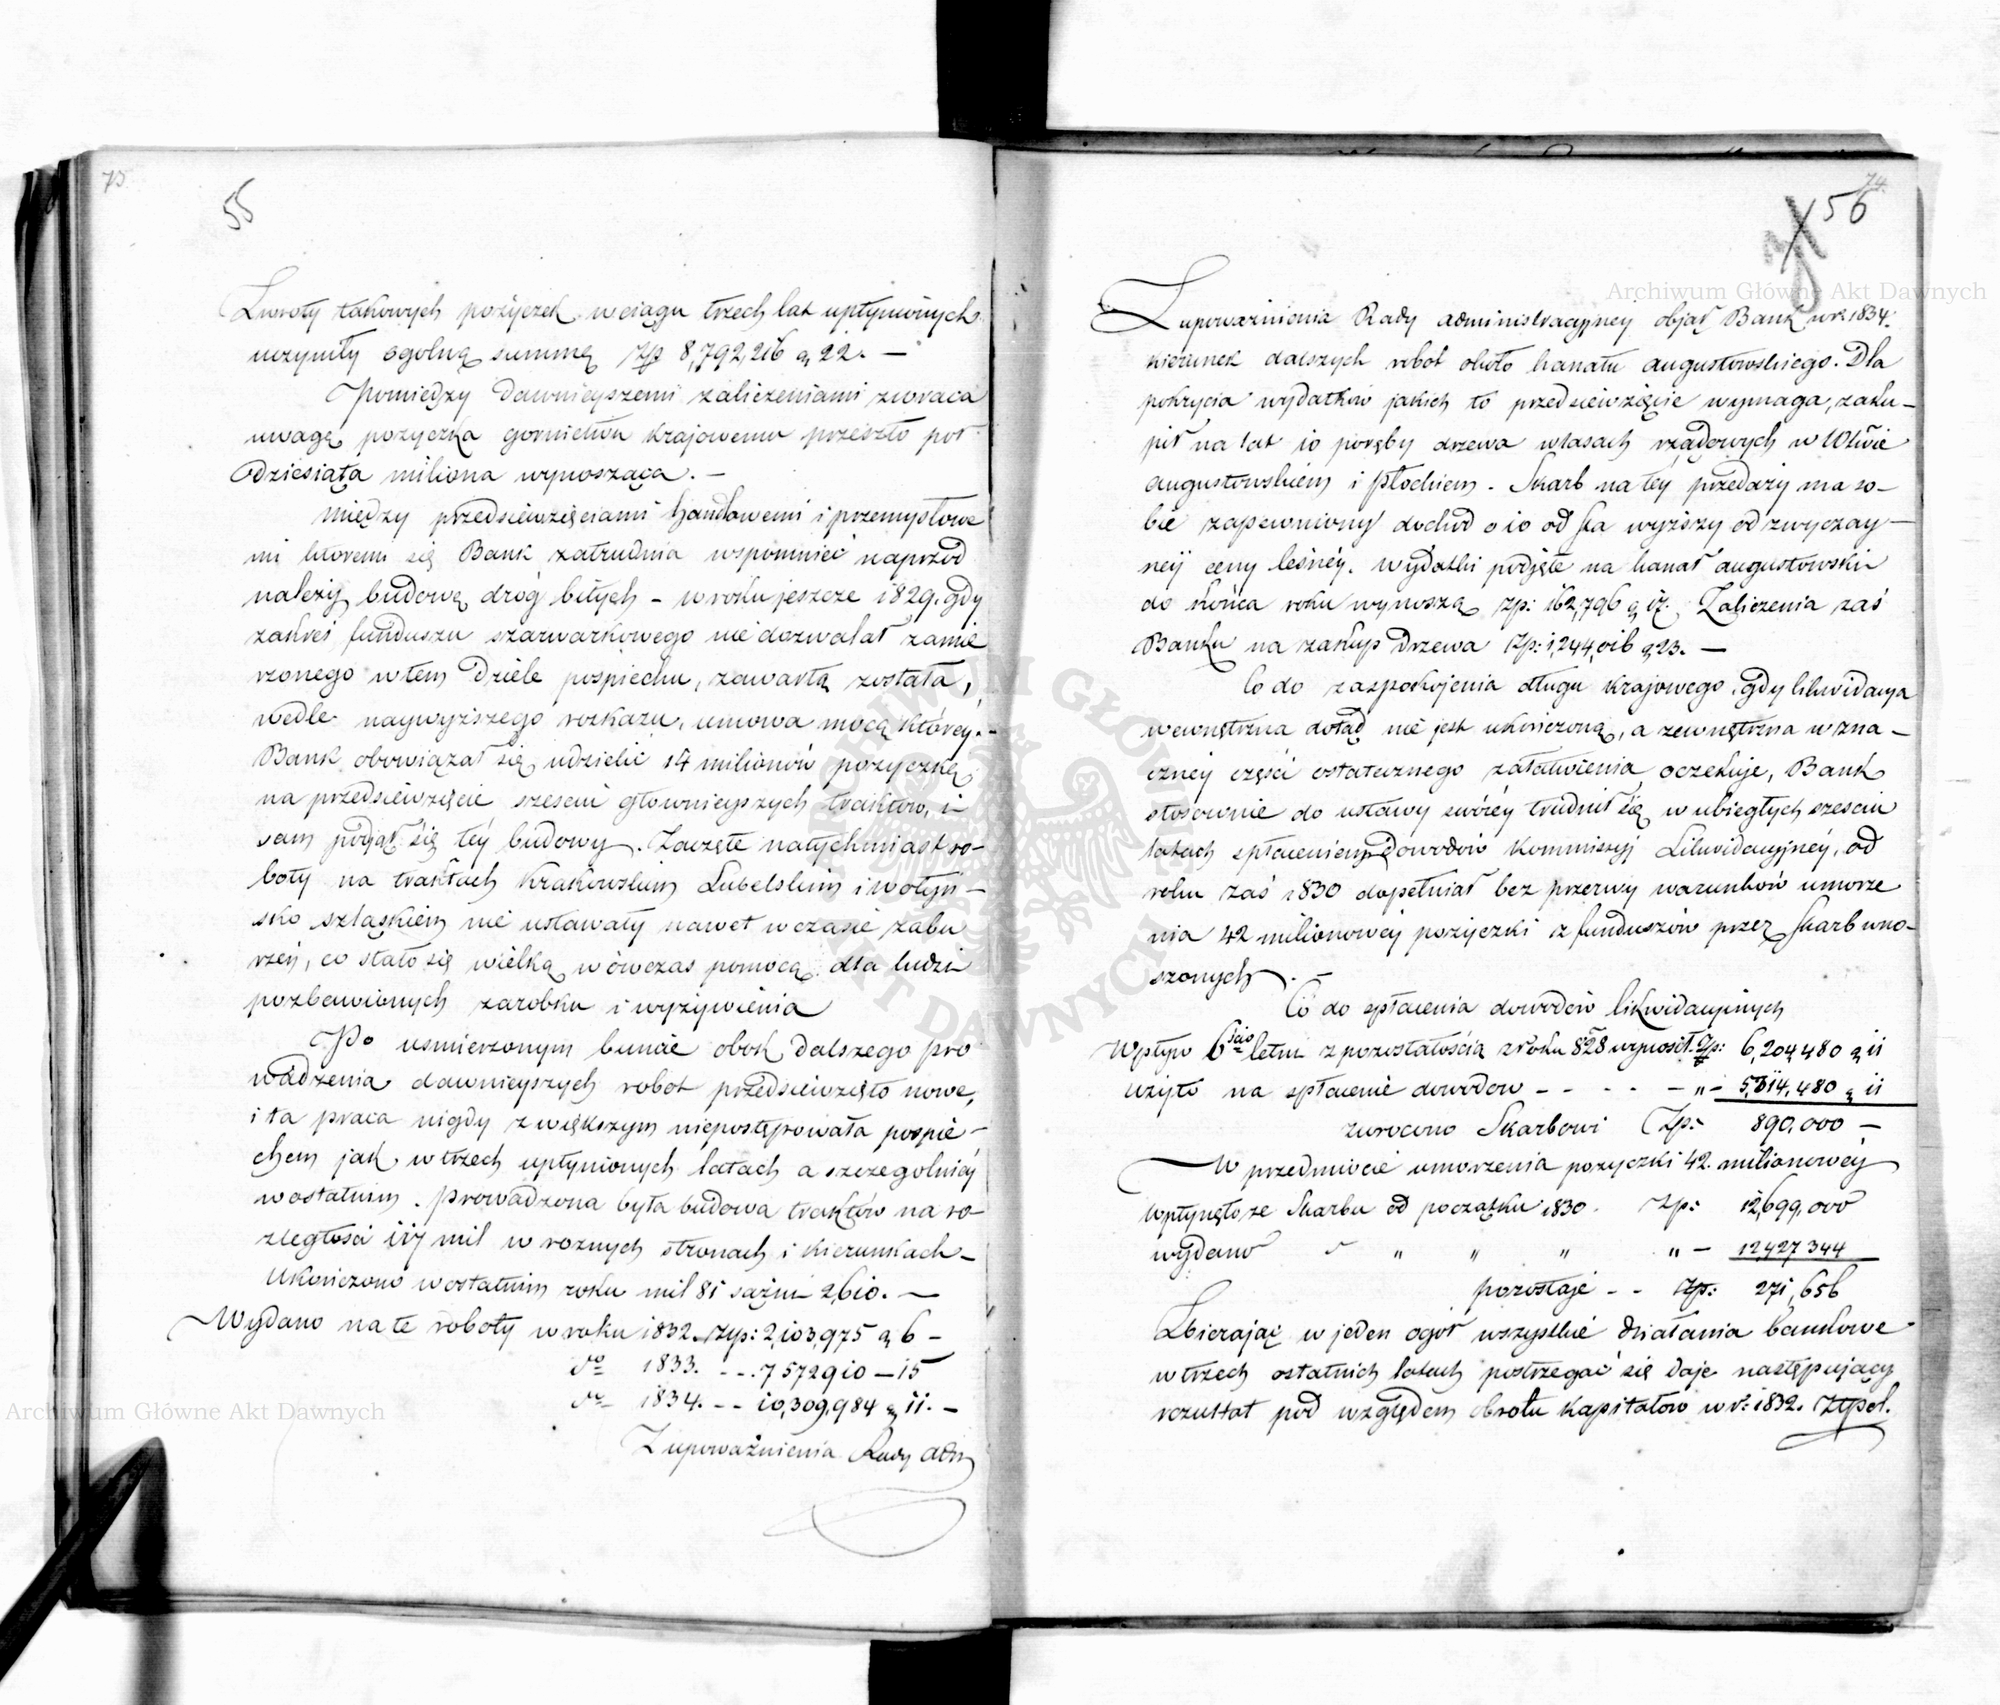 73
55
Zwroty takowych pożyczek w ciągu trzech lat upłynionych
uczyniły ogolną summę Złp 8,792,216 g 22. —
Pomiędzy dawnieyszemi zaliczeniami zwraca
uwagę pożyczka gornictwu krajowemu przeszło poł
dziesiąta miliona wynosząca. —
Między przedsięwzięciami handlowemi i przemysłowe
mi któremi się Bank zatrudnia wspomnieć naprzód
należy budowę dróg bitych — w roku jeszcze 1829. gdy
zakres funduszu szarwarkowego nie dozwalał zamie
rzonego w tem dziele pospiechu, zawartą została,
wedle naywyższego rozkazu, umowa mocą którey.
Bank obowiązał się udzielić 14 milionów pożyczkę
na przedsięwzięcie sześciu głownieyszych traktow, i
sam podjął się tey budowy. Zaczęte natychmiast ro-
boty na traktach Krakowskim Lubelskim i wołyń-
sko szląskiem nie ustawały nawet w czasie zabu
rzeń, co stało się wielką wówczas pomocą dla ludzi
pozbawionych zarobku i wyżywienia
Po usmierzonym buncie obok dalszego pro
wadzenia dawnieyszych robot przedsięwzięto nowe,
i ta praca nigdy z większym niepostępowała pospie-
chem jak w trzech upłynionych latach a szczegolniey
w ostatnim. Prowadzona była budowa traktów na ro-
zległości 117 mil w roznych stronach i kierunkach —
Ukończono w ostatnim roku mil 81 sążni 2,610. —
Wydano na te roboty w roku 1832. złp: 2,103,975 g 6 —
do 1833. - - . 7 572910 — 15
do 1834. - - 10,309,984 g 11. —
Z upoważnienia Rady Adm
74.
56
Z upoważnienia Rady administracyjney objął Bank w r: 1834.
kierunek dalszych robot około kanału augustowskiego. Dla
pokrycia wydatków jakich to przedsięwzięcie wymaga, zaku-
pił na lat 10 poręby drzewa w lasach rządowych w Wdztwie
augustowskiem i płockiem. Skarb na tey przedaży ma so-
bie zapewniony dochod o 10 od sta wyższy od zwyczay-
ney ceny leśney. Wydatki podjęte na kanał augustowski
do końca roku wynoszą zp: 162,796 g 17. Zaliczenia zaś
Banku na zakup drzewa Zp: 1,244,016 g 23. —
Co do zaspokojenia długu krajowego, gdy likwidacya
wewnętrzna dotąd nie jest ukończoną, a zewnętrzna w zna-
czney części ostatecznego załatwienia oczekuje, Bank
stosownie do ustawy swóiey trudnił się w ubiegłych sześciu
latach spłaceniem dowodów Kommissyj Likwidacyjney, od
roku zaś 1830 dopełniał bez przerwy warunków umorze
nia 42 milionowej pożyczki z funduszów przez Skarb wno-
szonych. —
Co do spłacenia dowodów likwidacyinych
Wpływ 6 letni z pozostałością z roku 828 wynosił Zp: 6,204,480 g 11
użyto na spłacenie dowodow - - - - - „ - 5,314,480 g 11
zwrócono Skarbowi Zp: 890,000 —
W przedmiocie umorzenia pożyczki 42. milionowey
wpłynęło ze Skarbu od początku 1830. Zp: 12,699,000
wydano „ „ „ „ — 12,427 344
pozostaje - - Zp: 271,656
Zbierając w jeden ogół wszystkie działania bankowe
w trzech ostatnich latach postrzegać się daje następujący
rezultat pod względem obrotu kapitałow w r: 1832. Złpol.
Archiwum Główne Akt Dawnych
Archiwum Główne Akt Dawnych
ARCHIWUM GŁÓWNE AKT DAWNYCH